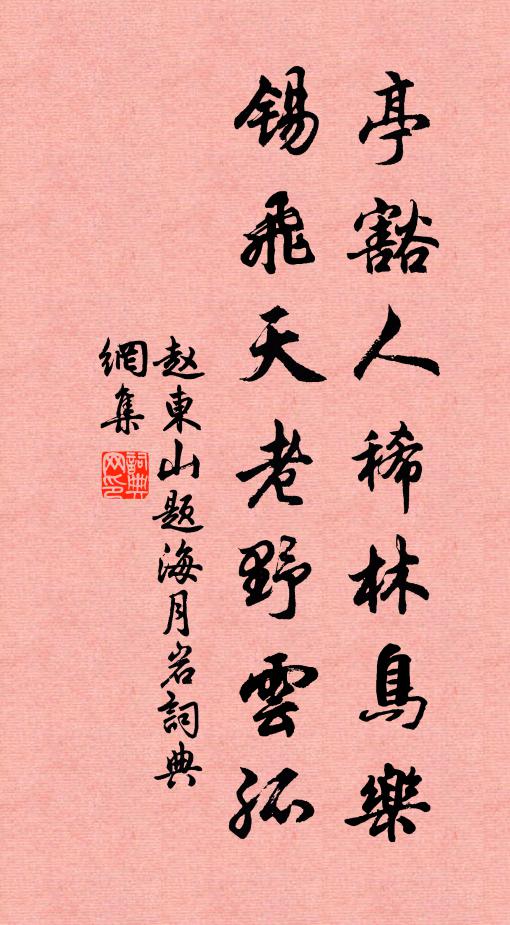 亭豁人稀林鳥樂
錫飛天老野雲孤
赵東山题海月岩詞典
網集
詞典网印